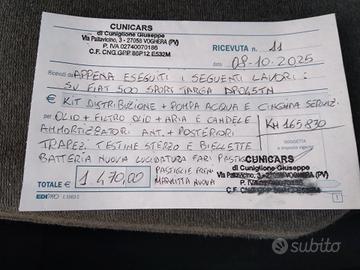 CUNICARS
di Cuniglione Giuseppe
Via Pallavicino, 3 - 27058 VOGHERA (PV)
P. IVA 02740070186
C.F. CNG GPP 86P12 E532M
RICEVUTA n. 11
09-10-2025
Ricevuti da APPENA ESEGUITI I SEGUENTI LAVORI:
SU FIAT 500 SPORT TARGA
€ KIT DISTRIBUZIONE + POMPA ACQUA E CINGHIA SERVIZI
per OLIO + FILTRO OLIO + ARIA E CANDELE KM 165.830
AMMORTIZZATORI ANT. + POSTERIORI
TRAPEZI TESTINE STERZO E BIELLETTE
BATTERIA NUOVA LUCIDATURA FARI
CUNICARS
di Cuniglione Giuseppe
Via Pallavicino, 3 - 27058 VOGHERA (PV)
P. IVA
C.F. CNG
TOTALE € 1.470,00
PASTIGLIE FRENI
MARMITTA NUOVA
EDIPRO
subito